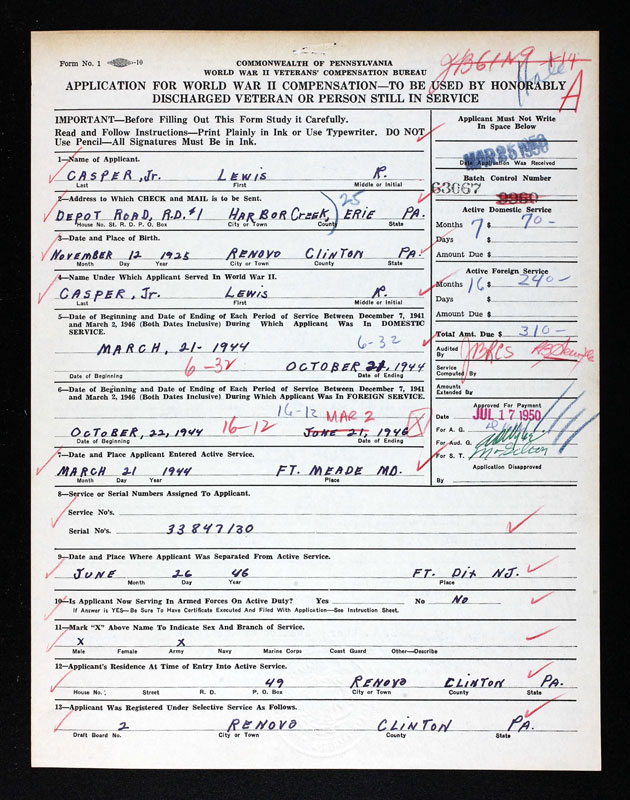 Form No. 1 -10
COMMONWEALTH OF PENNSYLVANIA
WORLD WAR II VETERANS' COMPENSATION BUREAU
APPLICATION FOR WORLD WAR II COMPENSATION—TO BE USED BY HONORABLY
DISCHARGED VETERAN OR PERSON STILL IN SERVICE
A
IMPORTANT—Before Filling Out This Form Study it Carefully.
Read and Follow Instructions—Print Plainly in Ink or Use Typewriter. DO NOT
Use Pencil—All Signatures Must Be in Ink.
1—Name of Applicant.
CASPER, Jr. LEWIS R.
Last First Middle or Initial
2—Address to Which CHECK and MAIL is to be Sent.
25
DEPOT ROAD, R.D.#1 HARBORCREEK, ERIE PA.
House No. St. R. D. P. O. Box City or Town County State
3—Date and Place of Birth.
NOVEMBER 12 1925 RENOVO CLINTON PA.
Month Day Year City or Town County State
4—Name Under Which Applicant Served In World War II.
CASPER, Jr. LEWIS R.
Last First Middle or Initial
5—Date of Beginning and Date of Ending of Each Period of Service Between December 7, 1941
and March 2, 1946 (Both Dates Inclusive) During Which Applicant Was In DOMESTIC
SERVICE.
6-32
MARCH, 21- 1944
6-32 OCTOBER 21, 1944
Date of Beginning Date of Ending
6—Date of Beginning and Date of Ending of Each Period of Service Between December 7, 1941
and March 2, 1946 (Both Dates Inclusive) During Which Applicant Was In FOREIGN SERVICE.
16-12 MAR 2
OCTOBER, 22, 1944 16-12 JUNE 21, 1946 X
Date of Beginning Date of Ending
7—Date and Place Applicant Entered Active Service.
MARCH 21 1944 FT. MEADE MD.
Month Day Year Place
8—Service or Serial Numbers Assigned To Applicant.
Service No's.
Serial No's. 33847130
9—Date and Place Where Applicant Was Separated From Active Service.
JUNE 26 46 FT. Dix NJ.
Month Day Year Place
10—Is Applicant Now Serving In Armed Forces On Active Duty? Yes No No
If Answer is YES—Be Sure To Have Certificate Executed And Filed With Application—See Instruction Sheet.
11—Mark "X" Above Name To Indicate Sex and Branch of Service.
X X
Male Female Army Navy Marine Corps Coast Guard Other—Describe
12—Applicant's Residence At Time of Entry Into Active Service.
49 RENOVO CLINTON PA.
House No. Street R. D. P. O. Box City or Town County State
13—Applicant Was Registered Under Selective Service As Follows.
2 RENOVO CLINTON PA.
Draft Board No. City or Town County State
Applicant Must Not Write
In Space Below
MAR 25 1950
Date Application Was Received
Batch Control Number
63067
Active Domestic Service
Months 7 $ 70-
Days $
Amount Due $
Active Foreign Service
Months 16 $ 240-
Days $
Amount Due $
Total Amt. Due $ 310-
Audited
By
Service
Computed By
Amounts
Extended By
Approved For Payment
Date JUL 17 1950
For A. G.
For Aud. G.
For S. T.
Application Disapproved
By